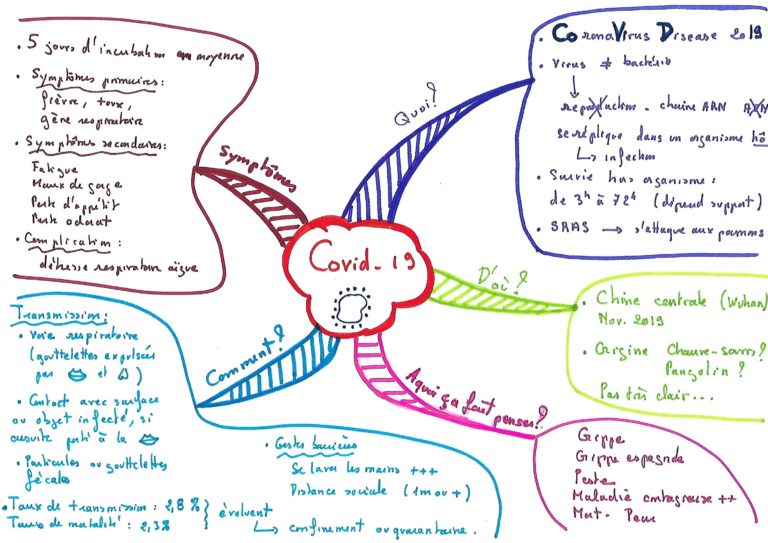 Covid-19
Quoi?
CoronaVirus Disease 2019
• Virus ≠ bactérie
reproduction - chaîne ARN
se réplique dans un organisme hô
↳ infection
• Survie hors organisme :
de 3h à 72h (dépend support)
• SRAS → s'attaque aux poumons
D'où ?
• Chine centrale (Wuhan)
Nov. 2019
• Origine Chauve-souris?
Pangolin ?
Pas très clair...
A quoi ça fait penser?
Grippe
Grippe espagnole
Peste
Maladie contagieuse ++
Mort - Peur
Comment?
Transmission:
• Voie respiratoire
(gouttelettes expulsées
par et )
• Contact avec surface
ou objet infecté, si
ensuite porté à la
• Particules ou gouttelettes
fécales
• Taux de transmission : 2,8 %
Taux de mortalité : 2,3%
évoluent
• Gestes barrières
Se laver les mains +++
Distance sociale (1m ou +)
↳ confinement ou quarantaine.
Symptômes
• 5 jours d'incubation en moyenne
• Symptômes primaires:
fièvre, toux,
gêne respiratoire
• Symptômes secondaires:
Fatigue
Maux de gorge
Perte d'appétit
Perte odorat
• Complication :
détresse respiratoire aigüe